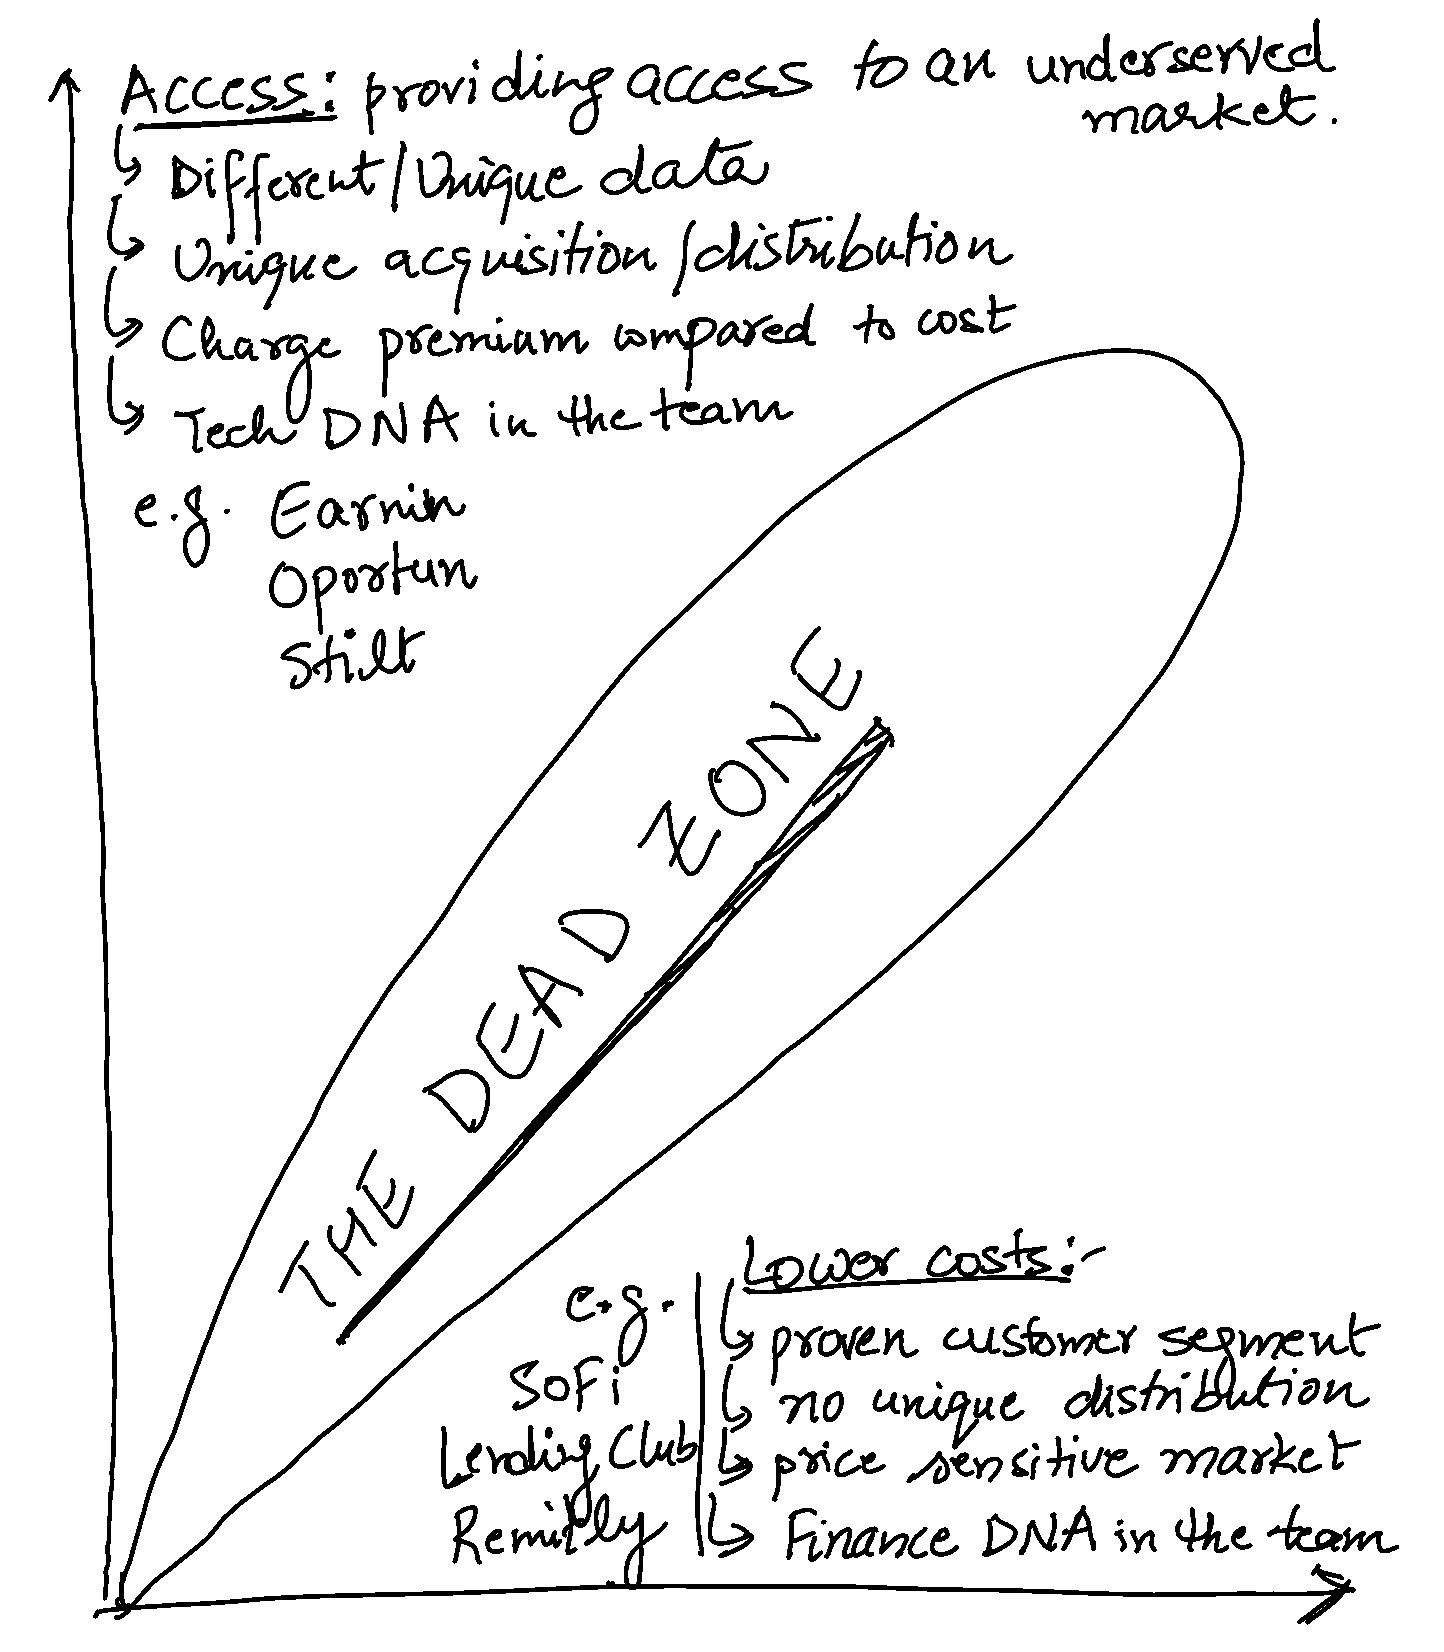 Access: providing access to an underserved
market.
Different/Unique data
Unique acquisition/distribution
Charge premium compared to cost
Tech DNA in the team
e.g. Earnin
Oportun
Stilt
THE DEAD ZONE
Lower costs:-
proven customer segment
no unique distribution
price sensitive market
Finance DNA in the team
e.g.
SoFi
Lending Club
Remitly